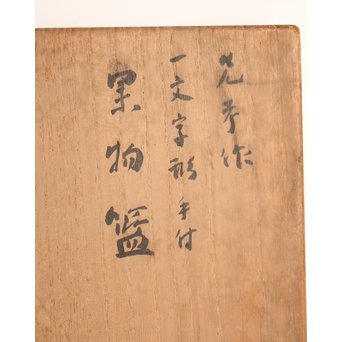 光斎作
一文字形手付
果物籃